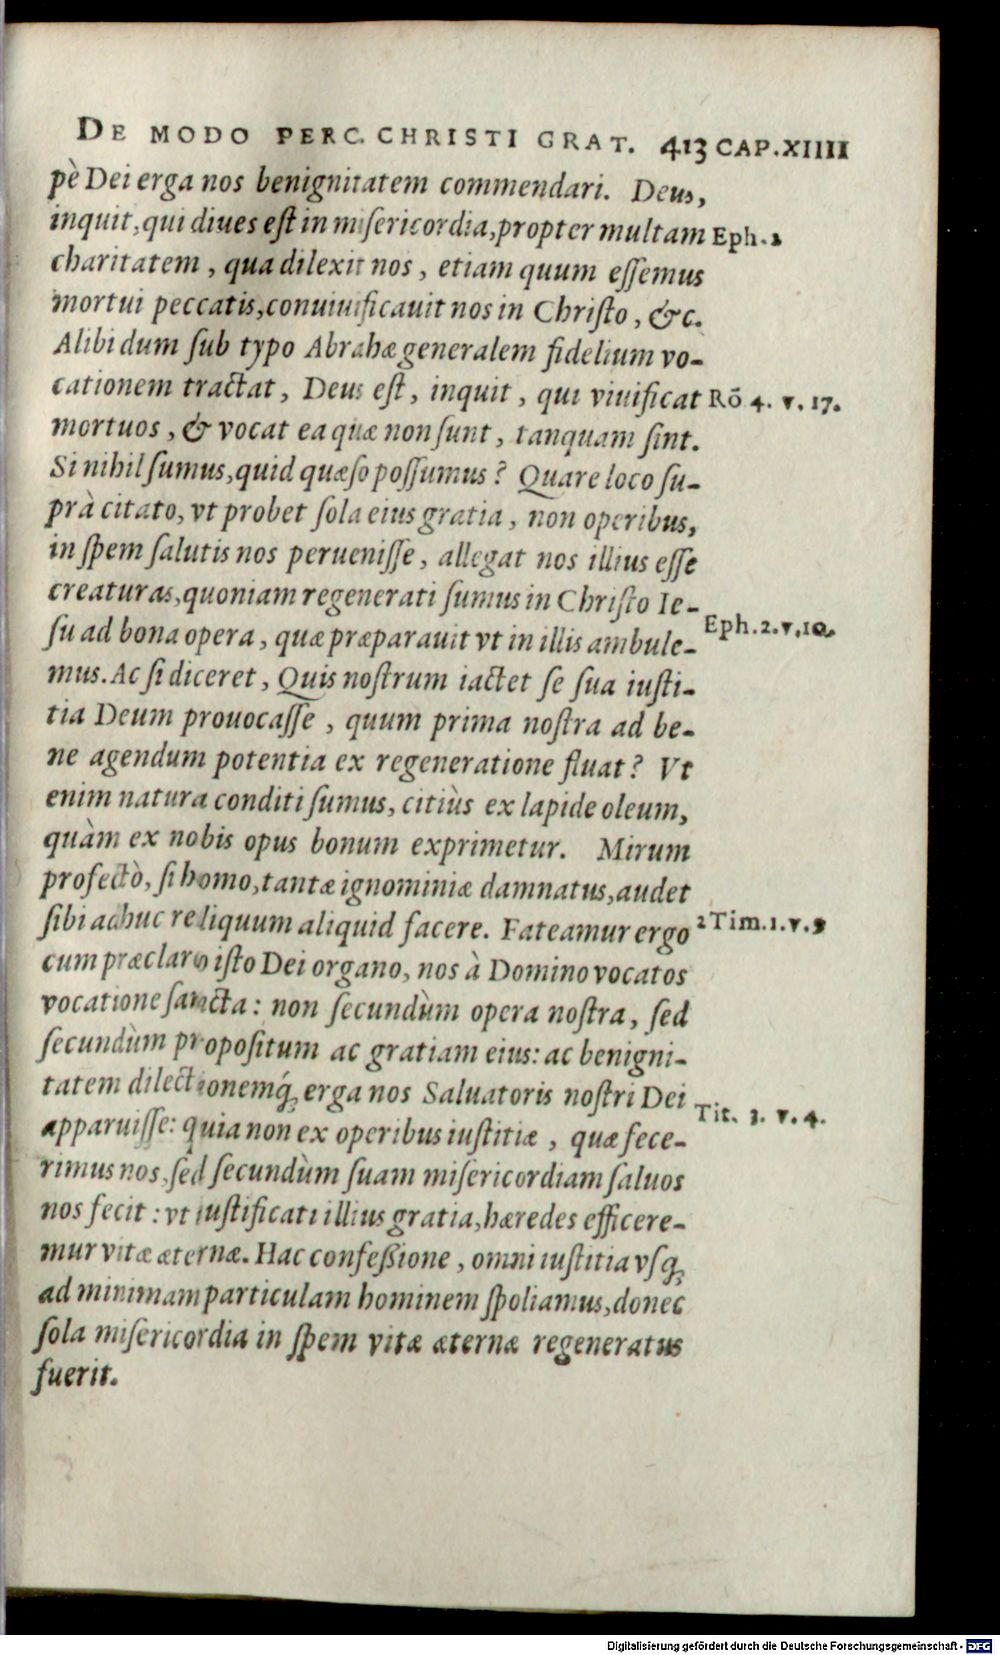 DE MODO PERC. CHRISTI GRAT. 413 CAP. XIIII
pè Dei erga nos benignitatem commendari. Deus,
inquit, qui diues est in misericordia, propter multam Eph. 2
charitatem, qua dilexit nos, etiam quum essemus
mortui peccatis, conuiuificauit nos in Christo, &c.
Alibi dum sub typo Abrahæ generalem fidelium vo-
cationem tractat, Deus est, inquit, qui viuificat Rō 4. v. 17.
mortuos, & vocat ea quæ non sunt, tanquam sint.
Si nihil sumus, quid quæso possumus? Quare loco su-
prà citato, vt probet sola eius gratia, non operibus,
in spem salutis nos peruenisse, allegat nos illius esse
creaturas, quoniam regenerati sumus in Christo Ie-
su ad bona opera, quæ præparauit vt in illis ambule- Eph. 2. v. 10.
mus. Ac si diceret, Quis nostrum iactet se sua iusti-
tia Deum prouocasse, quum prima nostra ad be-
ne agendum potentia ex regeneratione fluat? Vt
enim natura conditi sumus, citiùs ex lapide oleum,
quàm ex nobis opus bonum exprimetur. Mirum
profectò, si homo, tantæ ignominiæ damnatus, audet
sibi adhuc reliquum aliquid facere. Fateamur ergo 2 Tim. 1. v. 9
cum præclaro isto Dei organo, nos à Domino vocatos
vocatione sancta: non secundùm opera nostra, sed
secundùm propositum ac gratiam eius: ac benigni-
tatem dilectionemq́; erga nos Saluatoris nostri Dei
apparuisse: quia non ex operibus iustitiæ, quæ fece- Tit. 3. v. 4.
rimus nos, sed secundùm suam misericordiam saluos
nos fecit: vt iustificati illius gratia, hæredes efficere-
mur vitæ æternæ. Hac confeßione, omni iustitia vsq;
ad minimam particulam hominem spoliamus, donec
sola misericordia in spem vitæ æternæ regeneratus
fuerit.
Digitalisierung gefördert durch die Deutsche Forschungsgemeinschaft - DFG